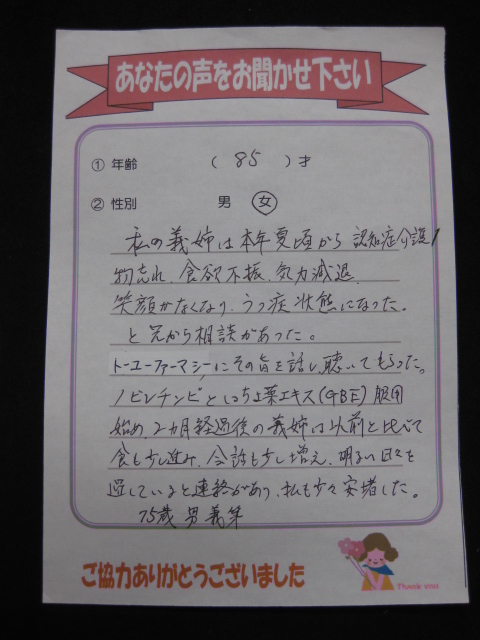 あなたの声をお聞かせ下さい
① 年齢 ( 85 )才
② 性別 男 女
私の義姉は本年夏頃から 認知症介護1
物忘れ、食欲不振、気力減退、
笑顔がなくなり、うつ症状態になった。
と兄から相談があった。
トーユーファーマシーにその旨を話し、聴いてもらった。
ノビレチンビといちょう葉エキス(GBE)服用
始め、2カ月経過後の義姉は以前と比べて
食も少し進み、会話も少し増え、明るい日々を
過していると連絡があり、私も少々安堵した。
75歳 男 義弟
ご協力ありがとうございました
Thank you